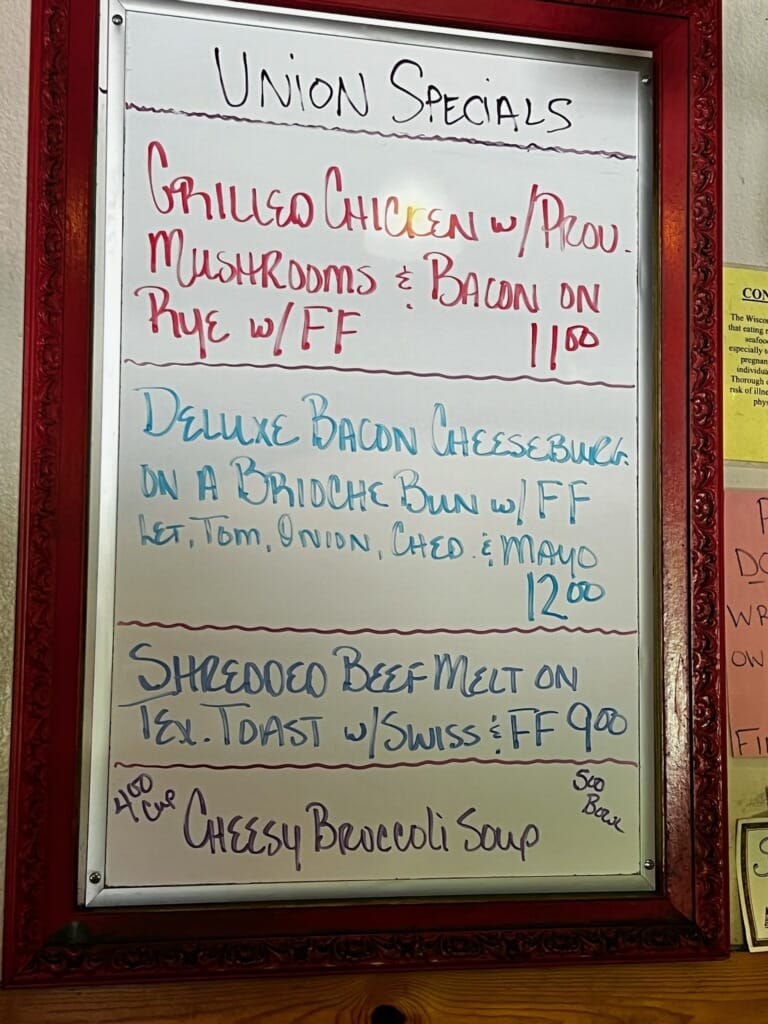 UNION SPECIALS
GRILLED CHICKEN w/PROV.
MUSHROOMS & BACON ON
RYE w/FF 11.00
DELUXE BACON CHEESEBURG.
ON A BRIOCHE BUN w/FF
LET, TOM, ONION, CHED. & MAYO
12.00
SHREDDED BEEF MELT ON
TEX. TOAST w/SWISS & FF 9.00
4.00 CUP
5.00 BOWL
CHEESY BROCCOLI SOUP
CON
The Wiscon
that eating r
seafoo
especially t
pregnan
individua
Thorough c
risk of illne
phys
DO
WR
OW
FI
S